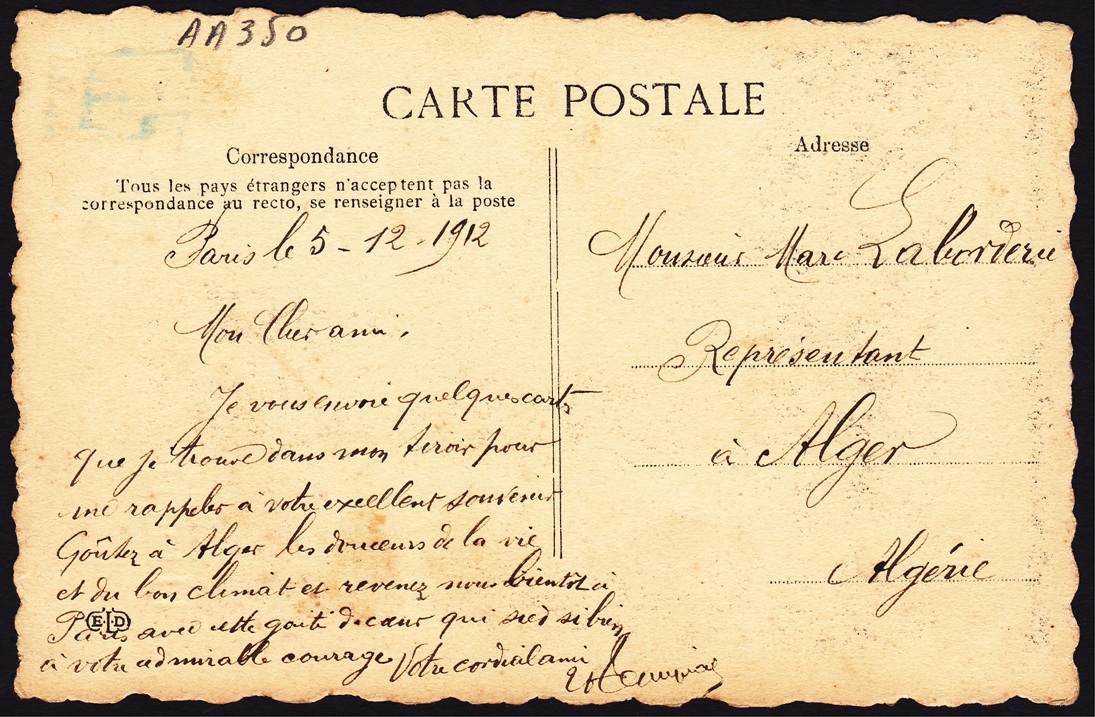 AA350
CARTE POSTALE
Correspondance
Tous les pays étrangers n'acceptent pas la
correspondance au recto, se renseigner à la poste
Paris le 5-12-1912
Mon Cher ami,
Je vous envoie quelques cart
que je trouve dans mon tiroir pour
me rappeler à votre excellent souvenir
Goûtez à Alger les douceurs de la vie
et du bon climat et revenez nous bientôt à
Paris avec cette gaité de cœur qui sied si bien
à votre admirable courage Votre cordial ami
ELD
Adresse
Monsieur Marc Laborderie
Représentant
à Alger
Algérie